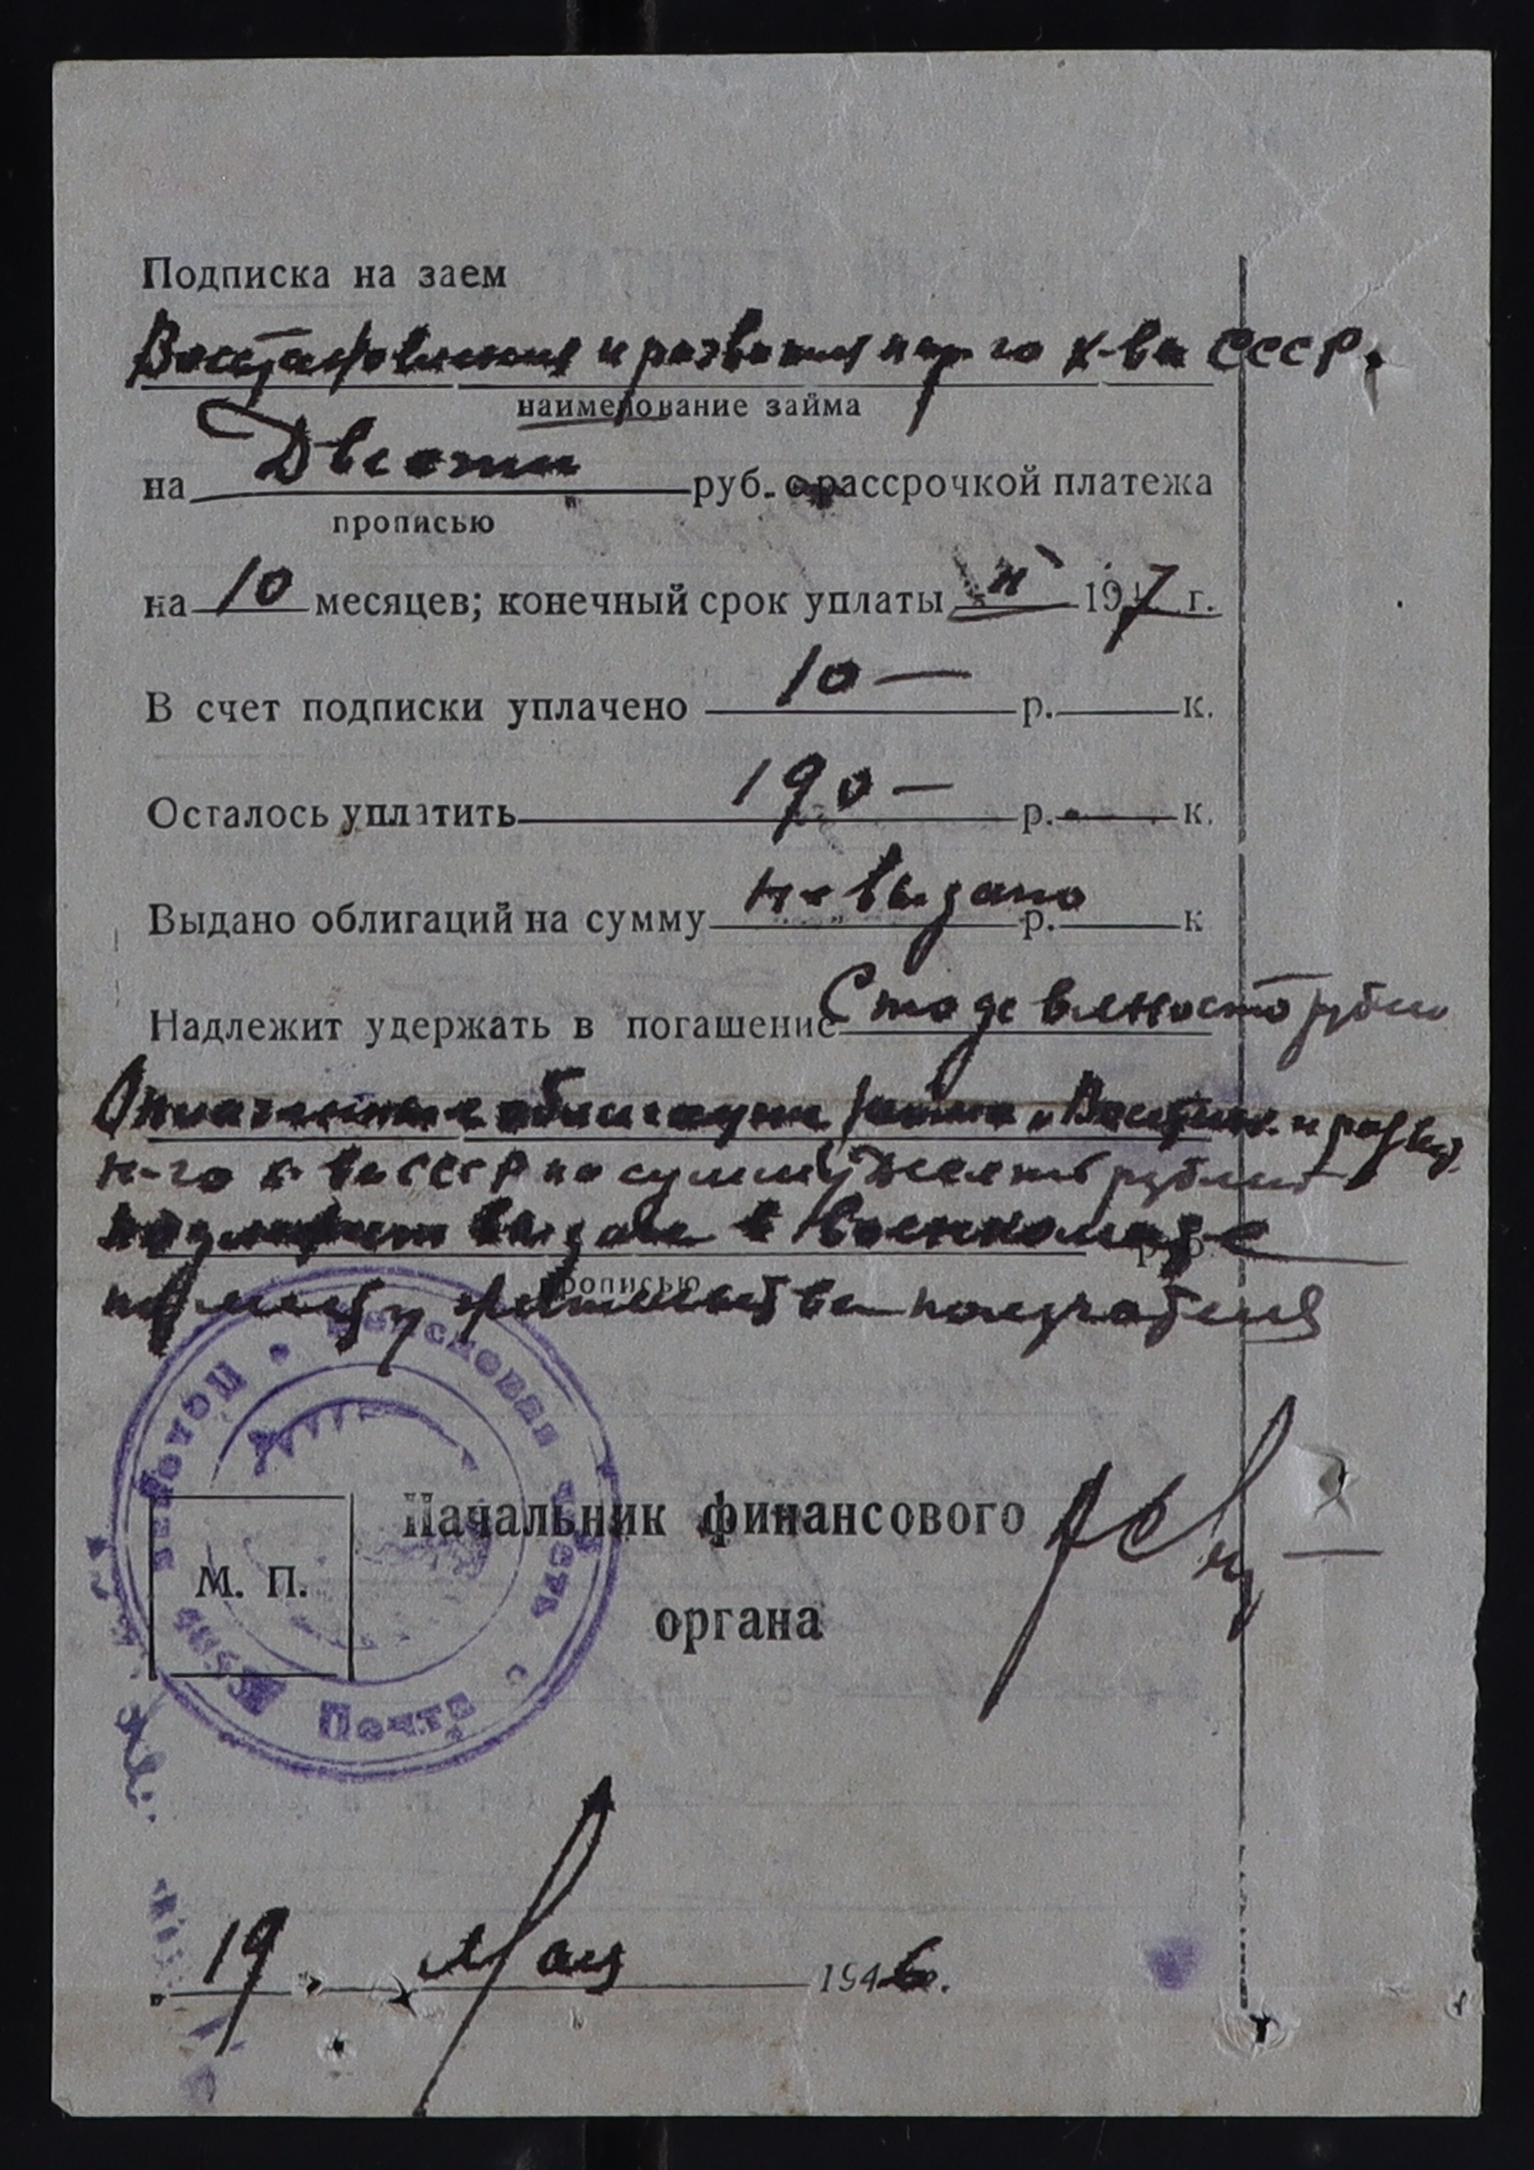 Подписка на заем
Восстановления и развития нар-го х-ва СССР.
наименование займа
на Двести руб. с рассрочкой платежа
прописью
на 10 месяцев; конечный срок уплаты 1947 г.
В счет подписки уплачено 10 — р. к.
Осталось уплатить 190 — р. к.
Выдано облигаций на сумму не выдано р. к
Надлежит удержать в погашение Сто девяносто рубл
облигации займа „Восстан. и развит
н-го х-ва СССР на сумму Десять рублей
надлежит выдать в военкомате
прописью
по месту жительства получателя
Полевая Почта
Начальник финансового
М. П.
органа
19 мая 1946 г.